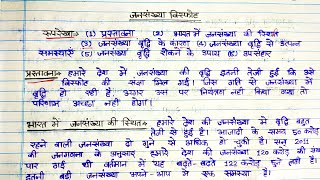 जनसंख्या विस्फोट
रूपरेखा→ (1) प्रस्तावना (2) भारत में जनसंख्या की स्थिति
(3) जनसंख्या वृद्धि के कारण (4) जनसंख्या वृद्धि से उत्पन्न
समस्याएँ (5) जनसंख्या वृद्धि रोकने के उपाय (6) उपसंहार
प्रस्तावना→ हमारे देश में जनसंख्या की वृद्धि इतनी तेजी हुई कि उसे
विस्फोट की संज्ञा मिल गई। जिस गति से जनसंख्या में
वृद्धि हो रही है, अगर उस पर नियंत्रण नहीं किया गया तो
परिणाम अच्छा नहीं होगा।
भारत में जनसंख्या की स्थिति→ हमारे देश की जनसंख्या में वृद्धि बहुत
तेजी से हुई है। आजादी के समय 50 करोड़
रहने वाली जनसंख्या दो गुने से अधिक हो चुकी है। सन् 2011
की जनगणना के अनुसार हमारे देश की जनसंख्या 120 करोड़ की संख्या
पार गई थी वर्तमान में यह बढ़ते-बढ़ते 122 करोड़
इतनी बड़ी जनसंख्या अपने-आप में एक समस्या है।